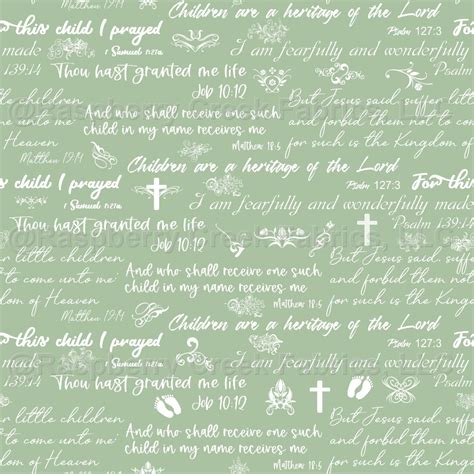 Children are a heritage of the Lord
this child I prayed
Psalm 127:3
For th
made
1 Samuel 1:27a
I am fearfully and wonderfully
139:14
Thou hast granted me life
Job 10:12
But Jesus said, suffer
@Raspberry Creek Fabrics, LLC
And who shall receive one such
forbid them not to
child in my name receives me
Heaven
for such is the Kingdom of
Matthew 19:14
Matthew 18:5
Children are a heritage of the Lord
this child I prayed
Psalm 127:3
For th
made
1 Samuel 1:27a
I am fearfully and wonderfully
139:14
Thou hast granted me life
Psalm
Job 10:12
@Raspberry Creek Fabrics, LLC
little children
But Jesus said, suffer
And who shall receive one such
come unto me
and forbid them not to
child in my name receives me
dom of Heaven
for such is the Kingdom
Matthew 19:14
Matthew 18:5
Children are a heritage of the Lord
this child I prayed
Psalm 127:3
For
made
1 Samuel 1:27a
I am fearfully and wonderfully
139:14
@Raspberry Creek Fabrics, LLC
Thou hast granted me life
Psalm
Job 10:12
little children
But Jesus said, suf
come unto me
And who shall receive one such
and forbid them not
child in my name receives me
dom of Heaven
for such is the Kingdo